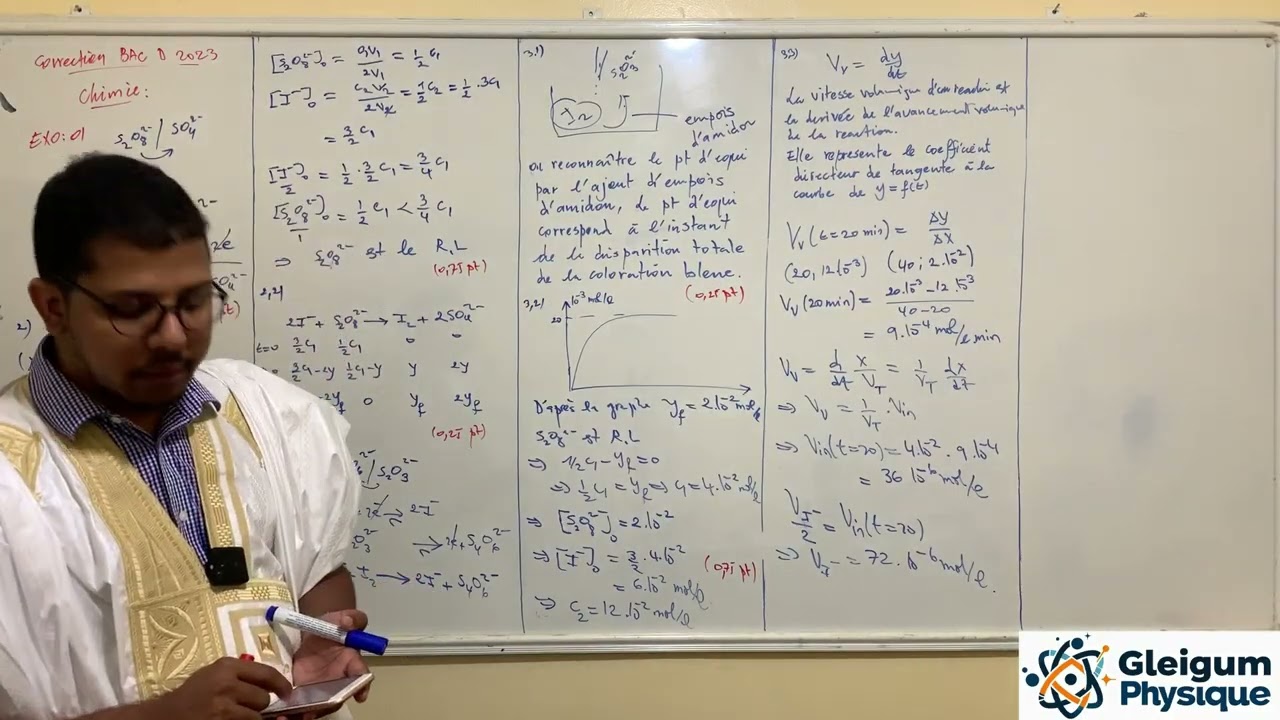 Correction BAC D 2023
Chimie:
EXO:01
S₂O₈²⁻ / SO₄²⁻
2)
[S₂O₈²⁻]₀ = C₁V₁/2V₁ = 1/2 C₁
[I⁻]₀ = C₂V₂/2V₂ = 1/2 C₂ = 1/2 . 3C₁
= 3/2 C₁
[I⁻]₀/2 = 1/2 . 3/2 C₁ = 3/4 C₁
[S₂O₈²⁻]₀/1 = 1/2 C₁ < 3/4 C₁
⇒ S₂O₈²⁻ est le R.L
(0,75 pt)
2,2)
2I⁻ + S₂O₈²⁻ → I₂ + 2SO₄²⁻
t=0 3/2 C₁ 1/2 C₁ 0 0
3/2 C₁-2y 1/2 C₁-y y 2y
2yf 0 yf 2yf
(0,25 pt)
/S₂O₃²⁻
⇌ 2I⁻
⇌ 2e + S₄O₆²⁻
I₂ → 2I⁻ + S₄O₆²⁻
3,1)
S₂O₃²⁻
I₂ I⁻
empois
d'amidon
on reconnaître le pt d'equi
par l'ajout d'empois
d'amidon, le pt d'equi
correspond à l'instant
de la disparition totale
de la coloration bleue.
(0,25 pt)
3,2)
10⁻³ mol/l
20
D'après le graphe yf = 2.10⁻² mol/l
S₂O₈²⁻ est R.L
⇒ 1/2 C₁ - yf = 0
⇒ 1/2 C₁ = yf ⇒ C₁ = 4.10⁻² mol/l
⇒ [S₂O₈²⁻]₀ = 2.10⁻²
⇒ [I⁻]₀ = 3/2 . 4.10⁻²
(0,75 pt)
= 6.10⁻² mol/l
⇒ C₂ = 12.10⁻² mol/l
3,3)
Vv = dy/dt
La vitesse volumique d'une reaction est
la derivée de l'avancement volumique
de la reaction.
Elle represente le coefficient
directeur de tangente à la
courbe de y = f(t)
Vv (t=20 min) = Δy/Δx
(20, 12.10⁻³) (40; 2.10⁻²)
Vv (20 min) = 20.10⁻³ - 12.10⁻³ / 40-20
= 9.10⁻⁴ mol/l min
Vv = d/dt x/VT = 1/VT dx/dt
⇒ Vv = 1/VT . Vin
⇒ Vin(t=20) = 4.10⁻² . 9.10⁻⁴
= 36 10⁻⁶ mol/l
VI⁻/2 = Vin(t=20)
⇒ VI⁻ = 72.10⁻⁶ mol/l.
Gleigum
Physique